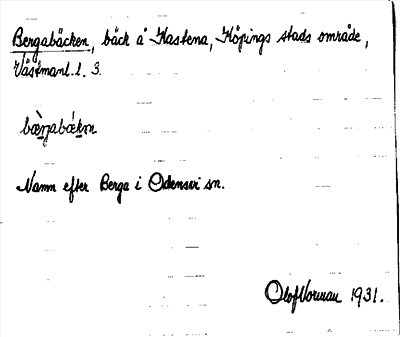 Bergabäcken, bäck å Kastena, Köpings stads område,
Västmanl. l. 3.
Namn efter Berga i Odensvi sn.
Olof 1931.